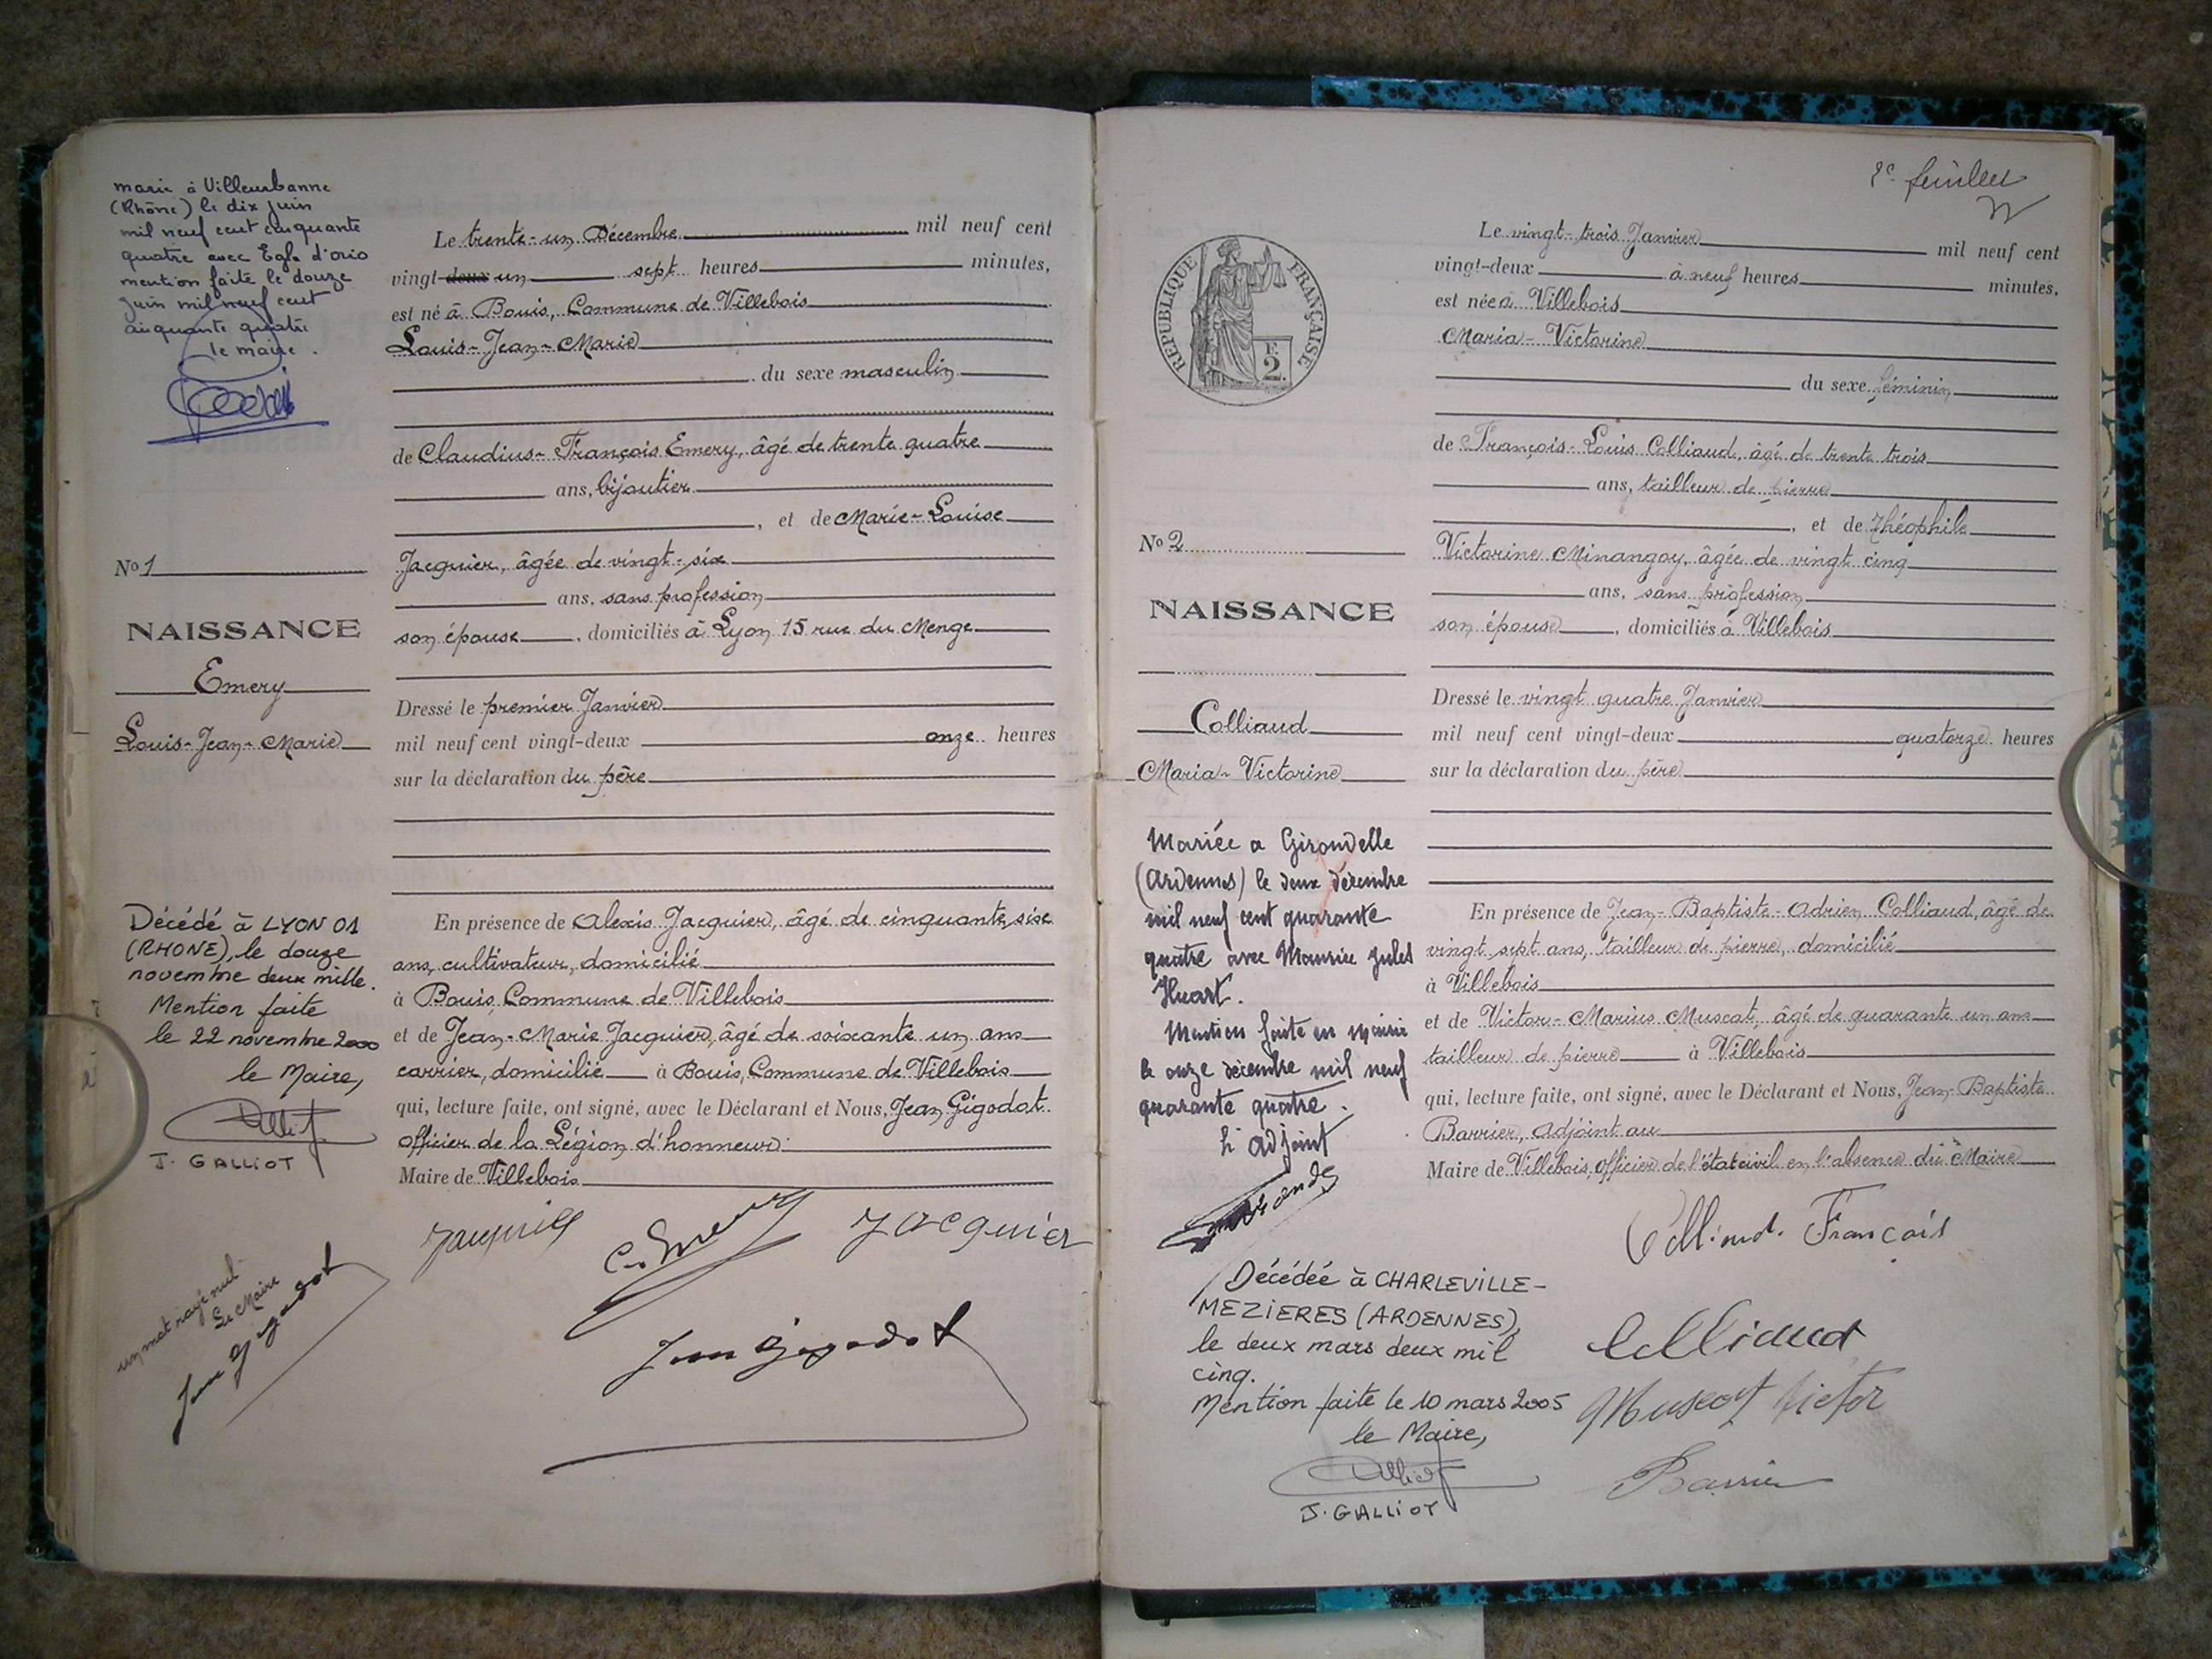 marié à Villeurbanne
(Rhône) le dix juin
mil neuf cent cinquante
quatre avec Egle d'orio
mention faite le douze
juin mil neuf cent
cinquante quatre
le maire.
Le trente-un Décembre mil neuf cent
vingt-deux un sept heures minutes,
est né à Bouis, Commune de Villebois
Louis-Jean-Marie
du sexe masculin
de Claudius-François Emery, âgé de trente quatre
ans, bijoutier
, et de Marie-Louise
Jacquier, âgée de vingt-six
ans, sans profession
son épouse, domiciliés à Lyon 15 rue du Menge
Dressé le premier Janvier
mil neuf cent vingt-deux onze heures
sur la déclaration du père
En présence de Alexis Jacquier, âgé de cinquante six
ans, cultivateur, domicilié
à Bouis, Commune de Villebois
et de Jean-Marie Jacquier, âgé de soixante un ans
carrier, domicilié à Bouis, Commune de Villebois
qui, lecture faite, ont signé, avec le Déclarant et Nous, Jean Gigodot
officier de la Légion d'honneur.
Maire de Villebois
No 1
NAISSANCE
Emery
Louis-Jean-Marie
Décédé à LYON 01
(RHONE), le douze
novembre deux mille.
Mention faite
le 22 novembre 2000
le Maire,
J. GALLIOT
Jacquier
C. Emery
Jacquier
un mot rayé nul
Le Maire
Jean Gigodot
Jean Gigodot
2e feuillet
REPUBLIQUE FRANÇAISE
F.
2.
Le vingt-trois Janvier mil neuf cent
vingt-deux à neuf heures minutes,
est née à Villebois
Maria-Victorine
du sexe féminin
de François-Louis Colliaud, âgé de trente trois
ans, tailleur de pierre
, et de Théophile
Victorine Minangoy, âgée de vingt cinq
ans, sans profession
son épouse, domiciliés à Villebois
Dressé le vingt quatre Janvier
mil neuf cent vingt-deux quatorze heures
sur la déclaration du père
En présence de Jean-Baptiste-Adrien Colliaud, âgé de
vingt sept ans, tailleur de pierre, domicilié
à Villebois
et de Victor-Marius Muscat, âgé de quarante un ans
tailleur de pierre à Villebois
qui, lecture faite, ont signé, avec le Déclarant et Nous, Jean-Baptiste
Barrier, Adjoint au
Maire de Villebois, officier de l'état civil en l'absence du Maire
No 2
NAISSANCE
Colliaud
Maria-Victorine
Mariée a Girondelle
(Ardennes) le deux décembre
mil neuf cent quarante
quatre avec Maurice Jules
Huart.
Mention faite en mairie
le onze décembre mil neuf
quarante quatre.
L'adjoint
Décédée à CHARLEVILLE-
MEZIERES (ARDENNES),
le deux mars deux mil
cinq.
Mention faite le 10 mars 2005
le Maire,
J. GALLIOT
Colliaud François
Colliaud
Muscat Victor
Barrier